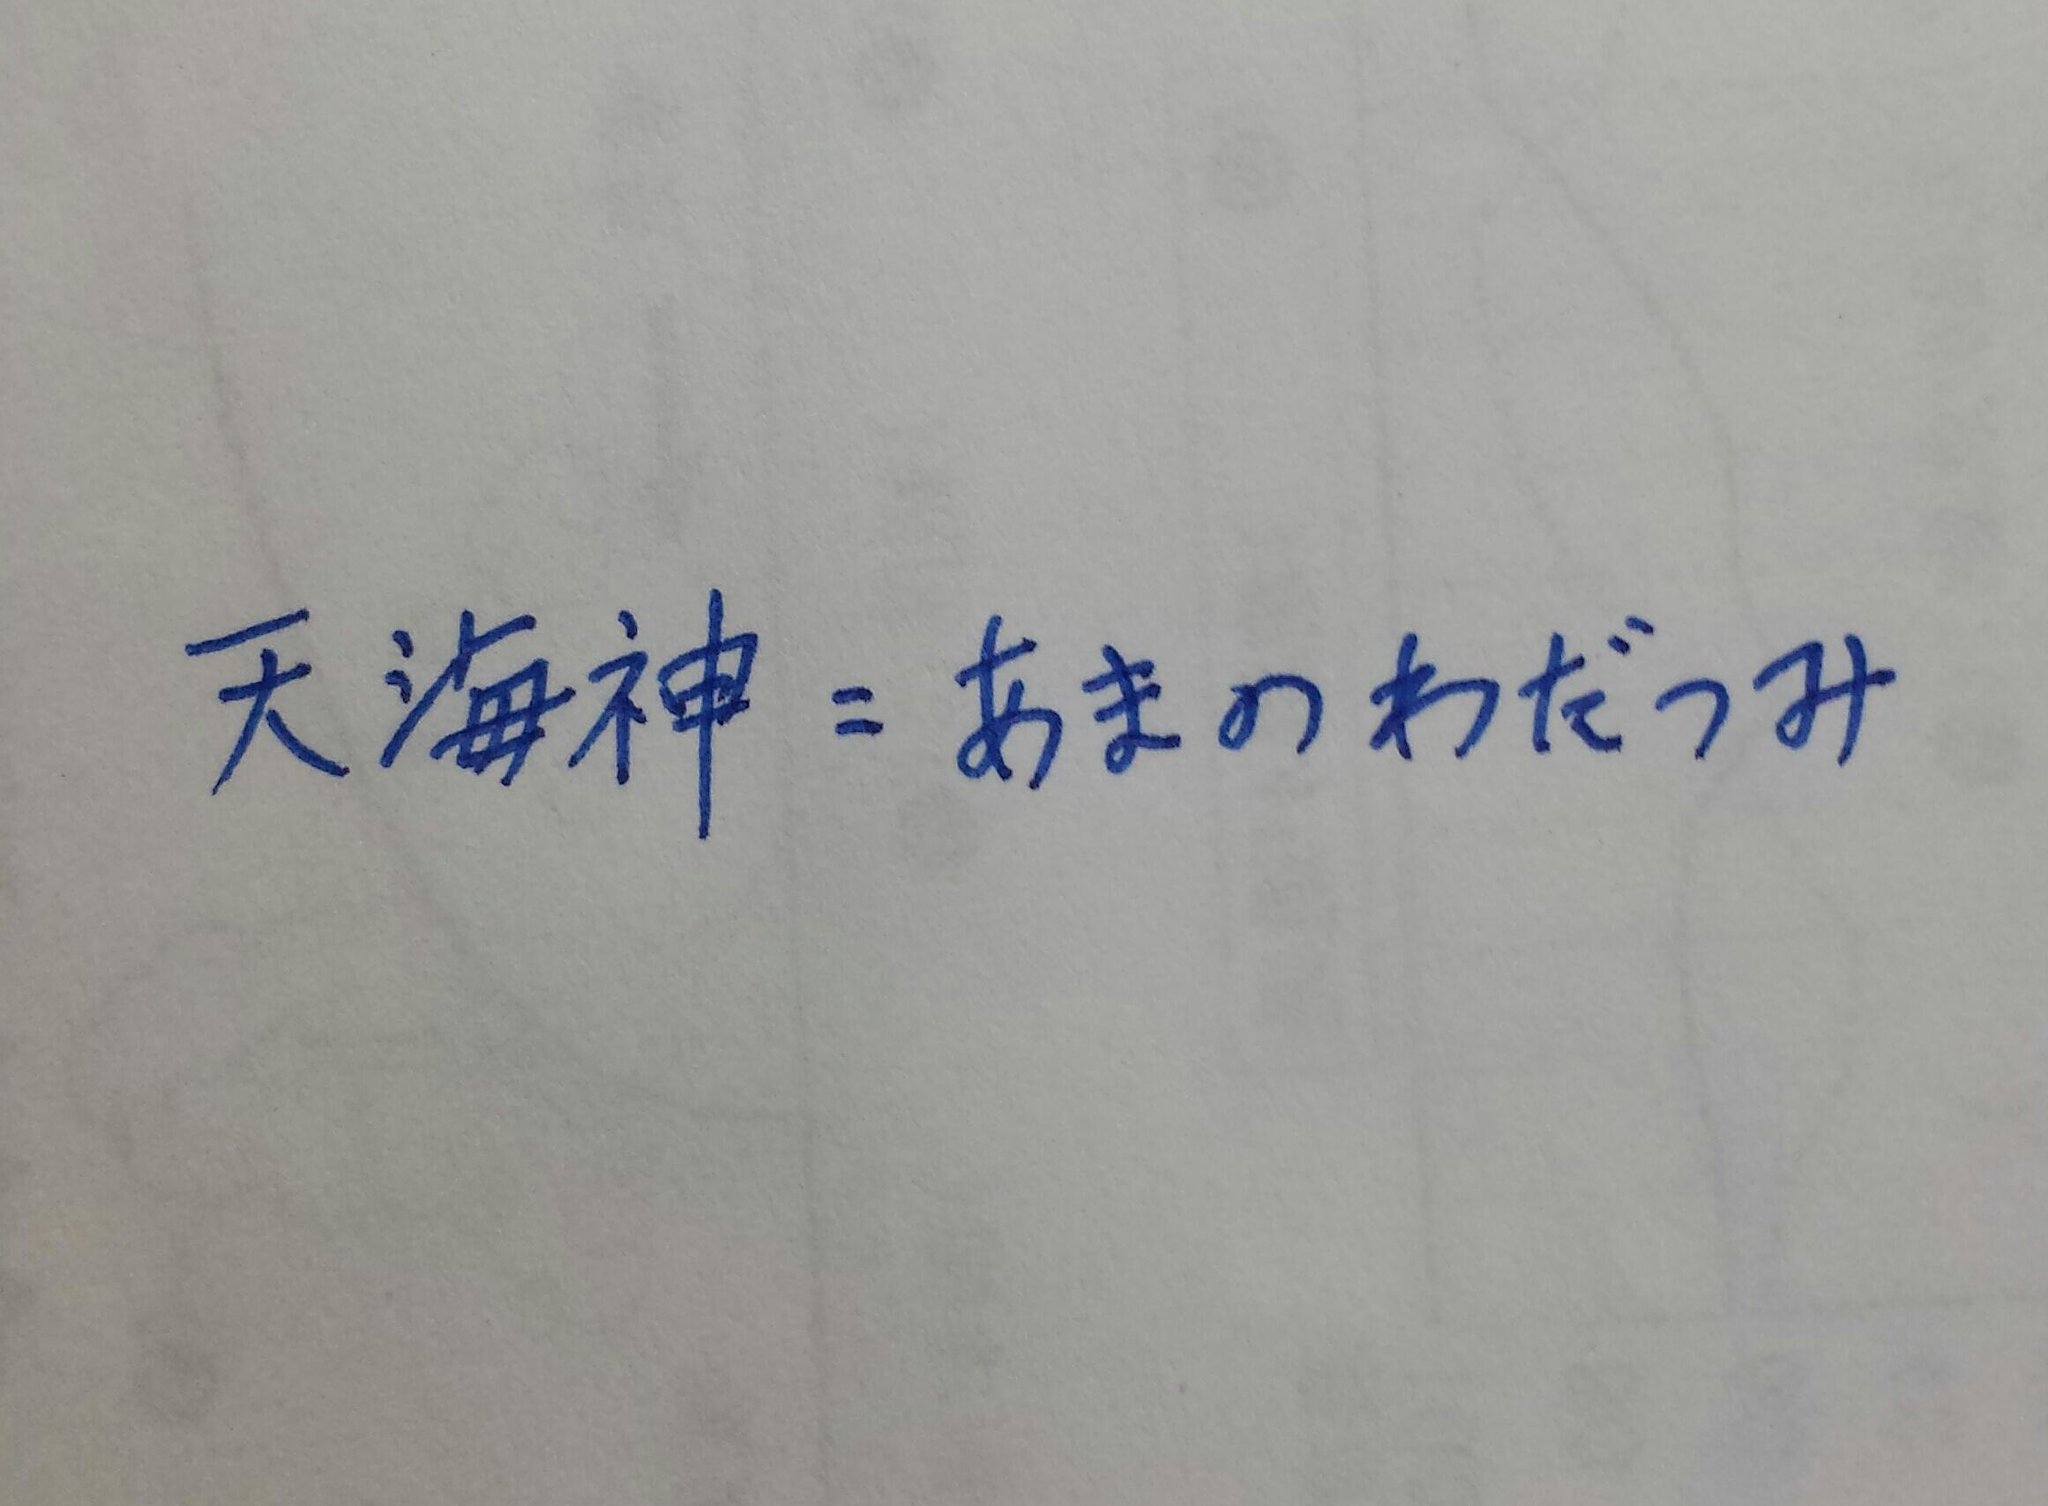 天海神=あまのわだつみ